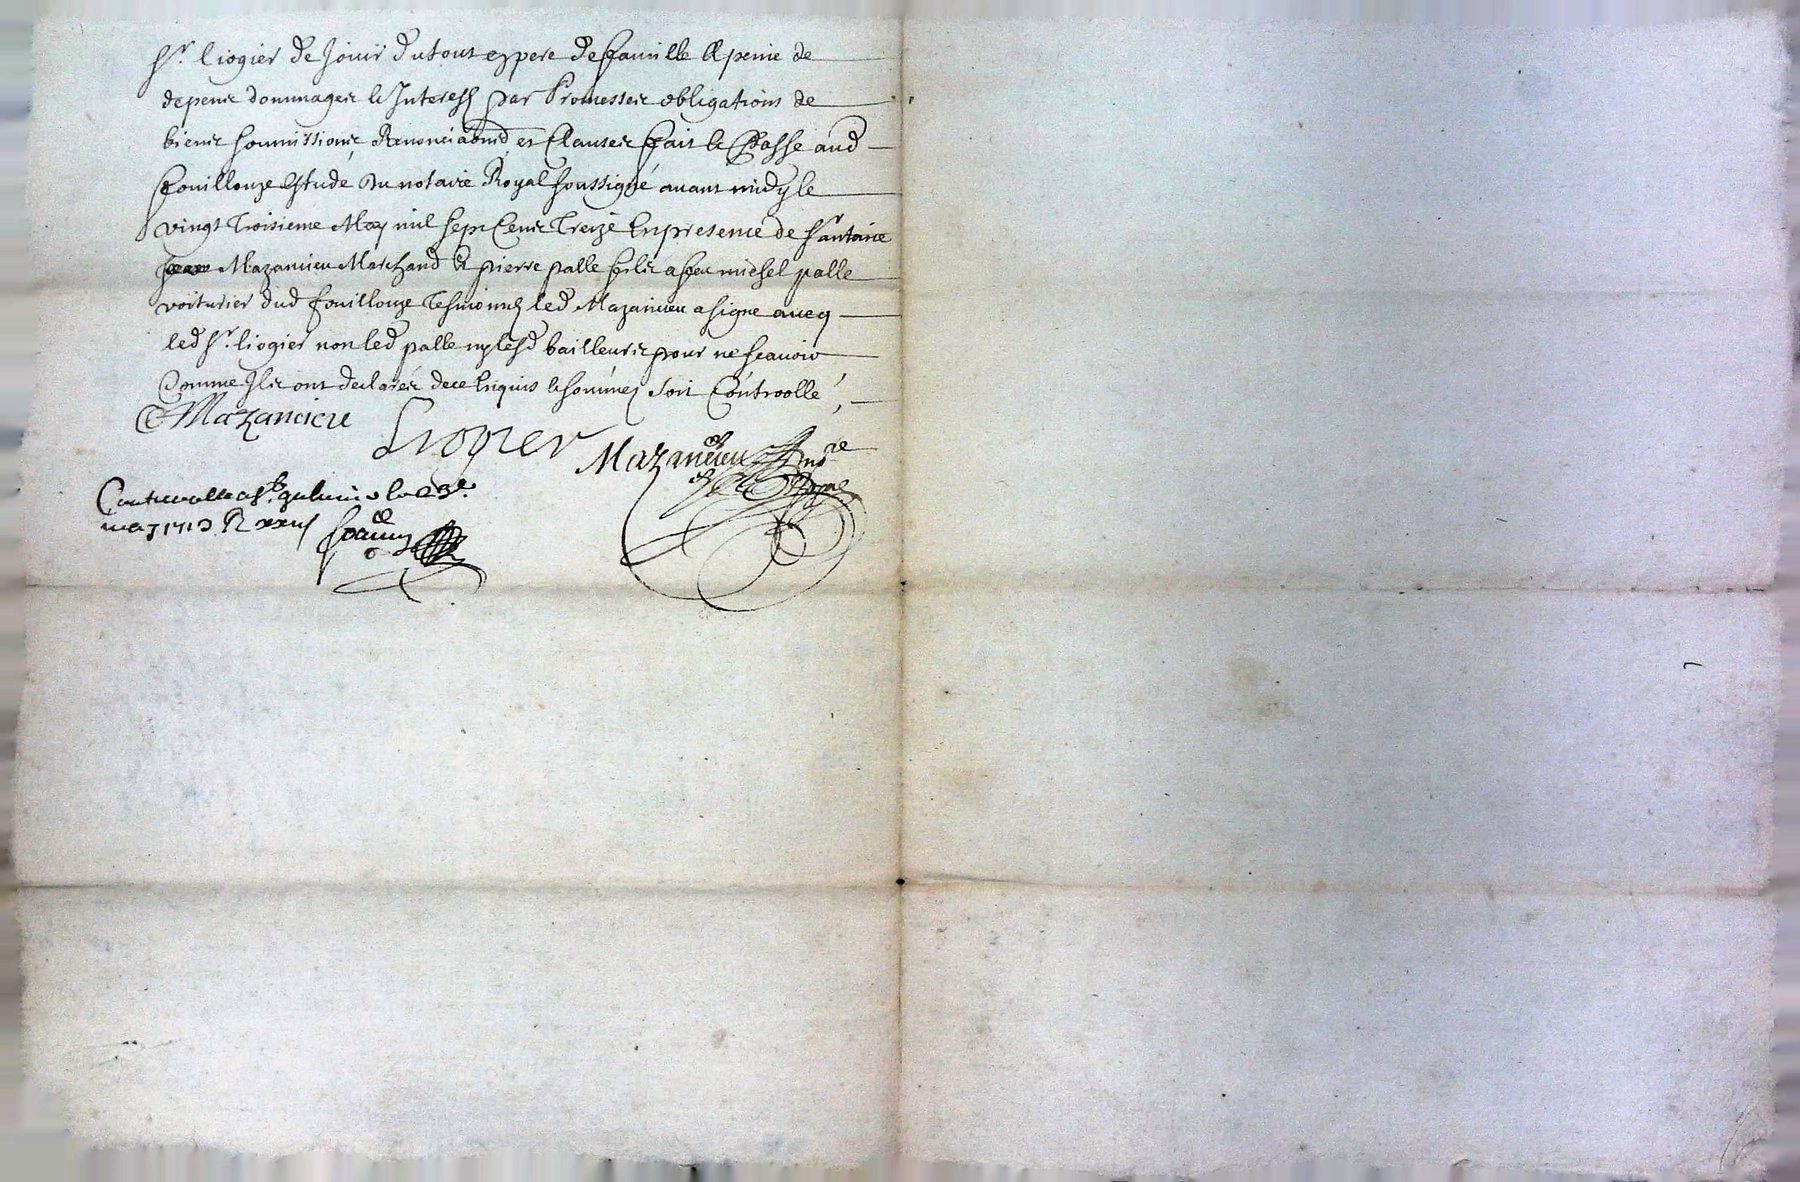 Sr. liogier de Jouir dutout en pere de famille A peine de
depens dommages & Interest par Promesses obligations de
biens soumissions Renonciations et Clauses fait & Passé aud
fouillouze Estude du notaire Royal soussigné avant midy le
vingt troisieme May mil sept Cens Treize En presence de Sr antoine
Mazancieu Marchand & pierre palle fils a feu michel palle
voiturier dud fouillouze Tesmoins led Mazancieu a signe avecq
led Sr. liogier non led palle ny lesd bailleurs pour ne scavoir
Comme Ils ont declarés de ce Enquis & sommes soit Controollé
Mazancieu
Liogier Mazancieu
Controolle a St. le 23e
may 1713 R